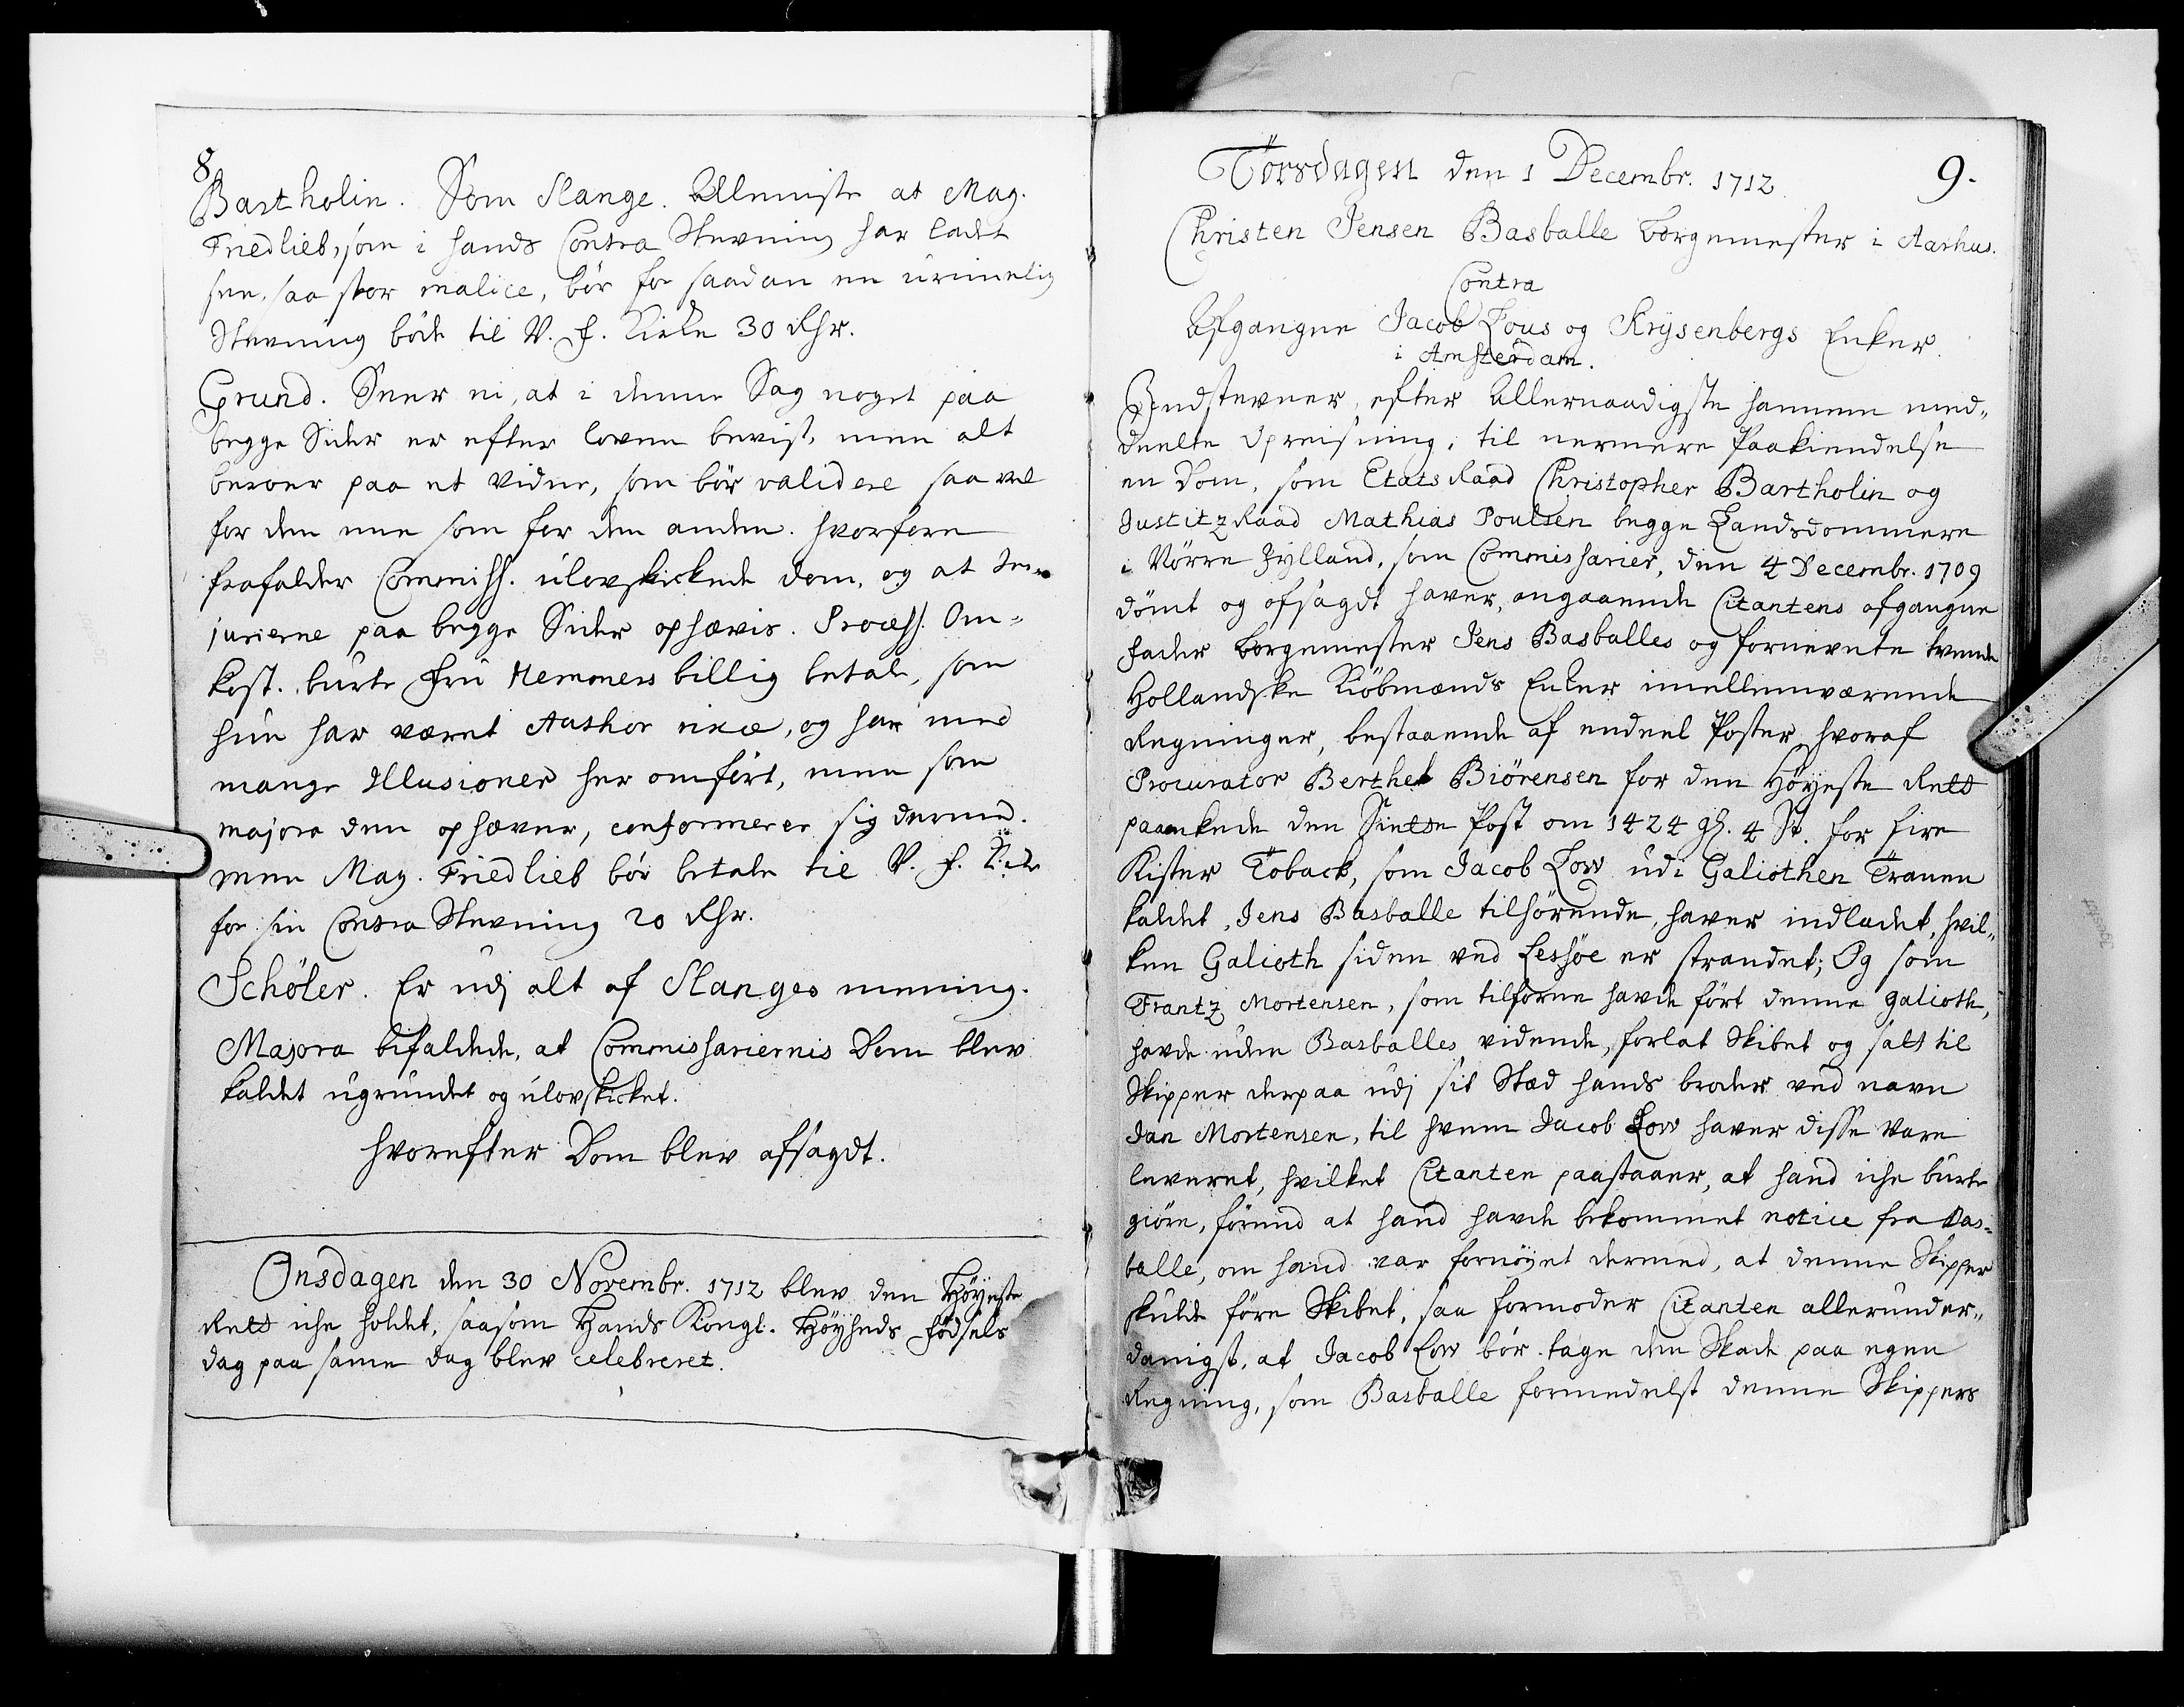 8
Bartholin. Som Slange. Alleniste at Mag.
Friedlieb, som i hands Contra Stevning har ladet
see, saa stor malice, bör for saadan en urimelig
Stevning böde til V. F. Kirke 30 Rdr.
Grund. Seer ei, at i denne Sag noget paa
begge Sider er efter loven bevist, men alt
beroer paa et vidne, som bör validere saa vel
for den eene som for den anden. hvorfore
frafalder Commiss. ulovskickede dom, og at In¬
jurierne paa begge Sider ophævis. Process. Om¬
kost. burte Fru Nemmers billig betale, som
hun har været Author rixæ, og har med
mange Illusioner her omfört, men som
majora den ophæver, conformerer sig dermed.
men Mag. Friedlieb bör betale til V. F. Kirke
for sin Contra Stevning 20 Rdr.
Schöler. Er udj alt af Slanges mening.
Majora bifaldede, at Commissariernis Dom blev
kaldet ugrundet og ulovskicket.
hvorefter Dom blev afsagdt.
Onsdagen den 30 Novembr. 1712 blev den Höyeste
Rett iche holdet, saasom Hands Kongl. Höyheds födsels
dag paa samme dag blev celebreret.
Törsdagen den 1 Decembr. 1712
9.
Christen Jensen Basballe borgemester i Aarhus.
Contra
Afgangne Jacob Lous og Krysenbergs Enker
i Amsterdam.
Indstevner, efter Allernaadigste hannem med¬
deelte Opreisning, til nermere Paakiendelse
en Dom, som Etats Raad Christopher Bartholin og
Justitz Raad Mathias Poulsen begge Landsdommere
i Nörre Jylland, som Commissarier, den 4 Decembr. 1709
dömt og afsagdt haver, angaaende Citantens afgangne
Fader borgemester Jens Basballes og fornevnte tvende
Hollandske Kiöbmænds Enker imellemværende
Regninger, bestaaende af endeel Poster, hvoraf
Procurator Berthel Biörensen for den Höyeste Rett
paaankede den Siette Post om 1424 gl. 4 St. for fire
Kister Toback, som Jacob Low udi Galiothen Tranen
kaldet, Jens Basballe tilhörende, haver indladet, hvil¬
ken Galioth siden ved Lessöe er strandet; Og som
Frantz Mortensen, som tilforne havde fört denne galioth,
havde uden Basballes vidende, forlat Skibet og satt til
Skipper derpaa udj sit Stæd hands broder ved navn
Jan Mortensen, til hvem Jacob Low haver disse Vare
leveret, hvilket Citanten paastaaer, at hand iche burte
giöre, förend at hand havde bekommet notice fra Bas¬
balle, om hand var fornöyet dermed, at denne Skipper
skulde före Skibet, saa formoder Citanten allerunder¬
danigst, at Jacob Low bör tage den Skade paa egen
Regning, som Basballe formedelst denne Skippers